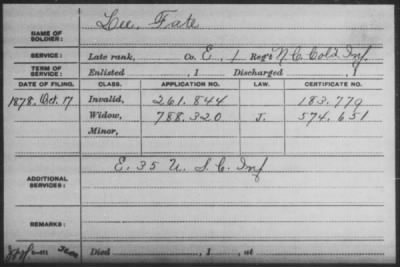 NAME OF SOLDIER: Lee, Fate
SERVICE: Late rank, Co. E, 1 Reg't N.C. Cold Inf.
TERM OF SERVICE: Enlisted , 1 Discharged , 1
DATE OF FILING. CLASS. APPLICATION NO. LAW. CERTIFICATE NO.
1878, Oct. 17 Invalid, 261.844 183.779
Widow, 788.320 J. 574.651
Minor,
ADDITIONAL SERVICES: E. 35 U. S. C. Inf
REMARKS:
Died , 1 , at